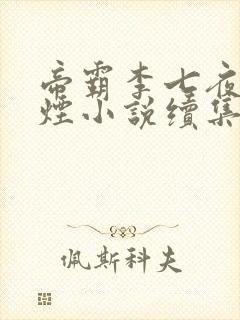 帝霸李七夜
煙小說續集
佩斯科夫